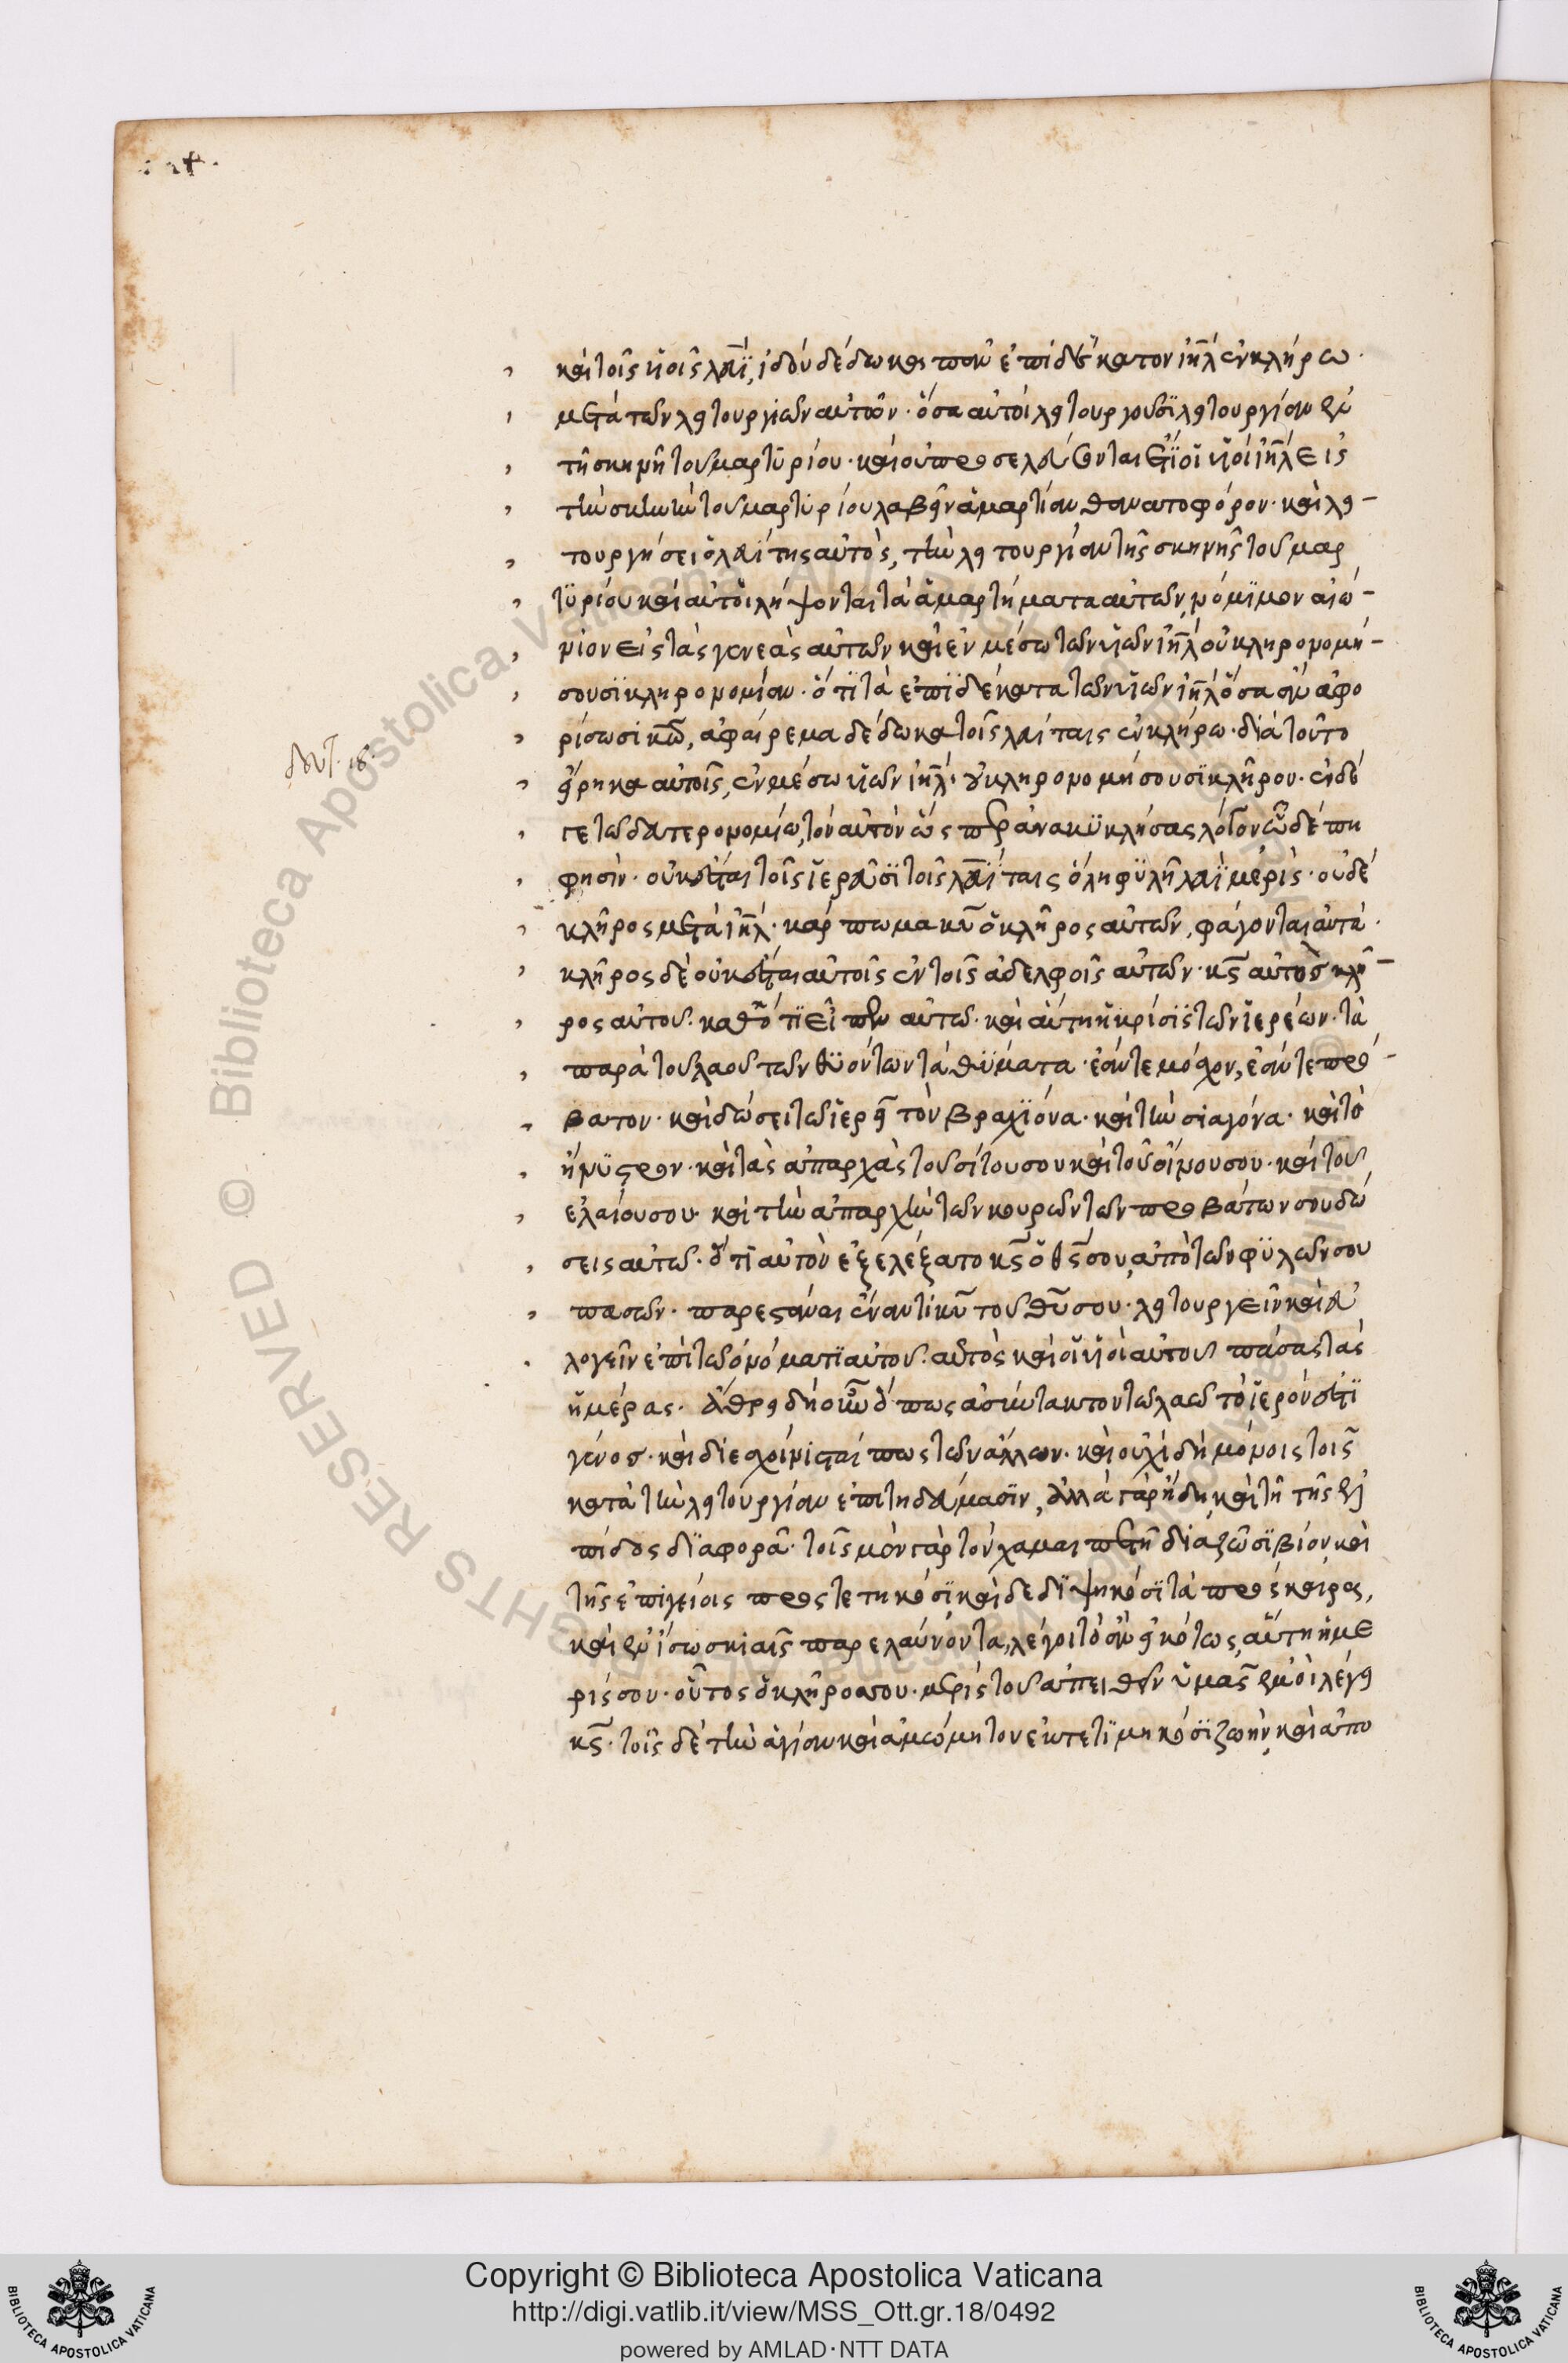 καὶ τοῖς υἱοῖς λευΐ, ἰδοὺ δέδωκα παν ἐπιδέκατον ἰηλ ἐν κλήρω·
μετὰ των λειτουργιων αὐτῶν· ὅσα αὐτοὶ λειτουργουσϊ λειτουργίαν ἐν
τῆ σκηνῆ του μαρτϋρίου· καὶ οὐ προσελεύσονται ἔτϊ οἱ υἱοὶ ἰηλ εἰς
τὴν σκηνὴν του μαρτϋρίου λαβεῖν ἁμαρτίαν θανατοφόρον· καὶ λει-
τουργήσει ὁ λευΐτης αὐτὸς, τὴν λειτουργίαν τῆς σκηνῆς του μαρ
τϋρίου καὶ αὐτοὶ λήψονται τὰ ἁμαρτήματα αὐτων, νόμϊμον αἰώ-
νιον εἰς τὰς γενεὰς αὐτων καὶ ἐν μέσω των υἱων ἰηλ οὐ κληρονομή-
σουσϊ κληρονομίαν· ὅτϊ τὰ ἐπϊδέκατα των υἱων ἰηλ ὅσα ἂν ἀφο
ρίσωσι κω, ἀφαίρεμα δέδωκα τοῖς λευίταις ἐν κλήρω· διὰ τοῦτο
εἴρηκα αὐτοῖς, ἐν μέσω υἱων ἰηλ· οὐ κληρονομήσουσϊ κλῆρον· ἐν δέ
γε τω δευτερονομίω, τὸν αὐτὸν ὥσπερ ἀνακϋκλήσας λόγον ὧδέ πη
φησὶν· οὐκ ἔσται τοῖς ἱερεῦσϊ τοῖς λευΐταις ὅλη φϋλῆ λευΐ μερὶς· οὐδὲ
κλῆρος μετὰ ἰηλ· κάρπωμα κυ ὁ κλῆρος αὐτων, φάγονται αὐτὰ·
κλῆρος δὲ οὐκ ἔσται αὐτοῖς ἐν τοῖς ἀδελφοῖς αὐτων· κς αὐτὸς κλῆ-
ρος αὐτου· καθότϊ εἶπεν αὐτω· καὶ αὕτη ἡ κρίσϊς των ἱερέων· τὰ
παρὰ του λαου των θϋόντων τὰ θϋματα· ἐάν τε μόσχον, ἐάν τε πρό-
βατον· καὶ δώσει τω ἱερεῖ τὸν βραχϊόνα· καὶ τὴν σιαγόνα· καὶ τὸ
ἤνϋστρον· καὶ τὰς ἀπαρχὰς του σίτου σου καὶ τοῦ οἴνου σου· καὶ του
ἐλαίου σου· καὶ τὴν ἀπαρχὴν των κουρων των προβάτων σου δώ
σεις αὐτω· ὅτϊ αὐτὸν ἐξελέξατο κς ὁ θς σου, ἀπὸ των φϋλων σου
πασων· παρεστάναι ἐναντι κυ του θυ σου· λειτουργεῖν καὶ εὐ
λογεῖν ἐπὶ τω ὀνόματϊ αὐτου· αὐτὸς καὶ οἱ υἱοὶ αὐτου πάσας τὰς
ἡμέρας· ἄθρει δὴ οὖν ὅπως ἀσύντακτον τω λαω τὸ ἱερόν ἐστϊ
γένος· καὶ διεσχοίνισταί πως των ἄλλων· καὶ οὐχὶ δὴ μόνοις τοῖς
κατὰ τὴν λειτουργίαν ἐπιτηδεύμασϊν, ἀλλὰ γὰρ ἤδη καὶ τῆ τῆς ἐλ
πίδος δϊαφορᾶ· τοῖς μὲν γὰρ τὸν χαμαιπετῆ διαζῶσϊ βίον, καὶ
τῆς ἐπιγείοις προστετηκόσϊ, καὶ δεδϊψηκόσϊ τὰ πρόσκαιρα,
καὶ ἐν ἴσω σκιαῖς παρελαύνοντα, λέγοιτο ἂν εἰκότως, αὕτη ἡ με
ρίς σου· οὗτος ὁ κλῆρος σου· μερὶς του ἀπειθεῖν ὑμᾶς ἐμοὶ λέγει
κς· τοῖς δὲ τὴν ἁγίαν καὶ ἀμώμητον ἐκτετϊμηκόσϊ ζωὴν, καὶ ἀπο
Copyright © Biblioteca Apostolica Vaticana
http://digi.vatlib.it/view/MSS_Ott.gr.18/0492
powered by AMLAD·NTT DATA